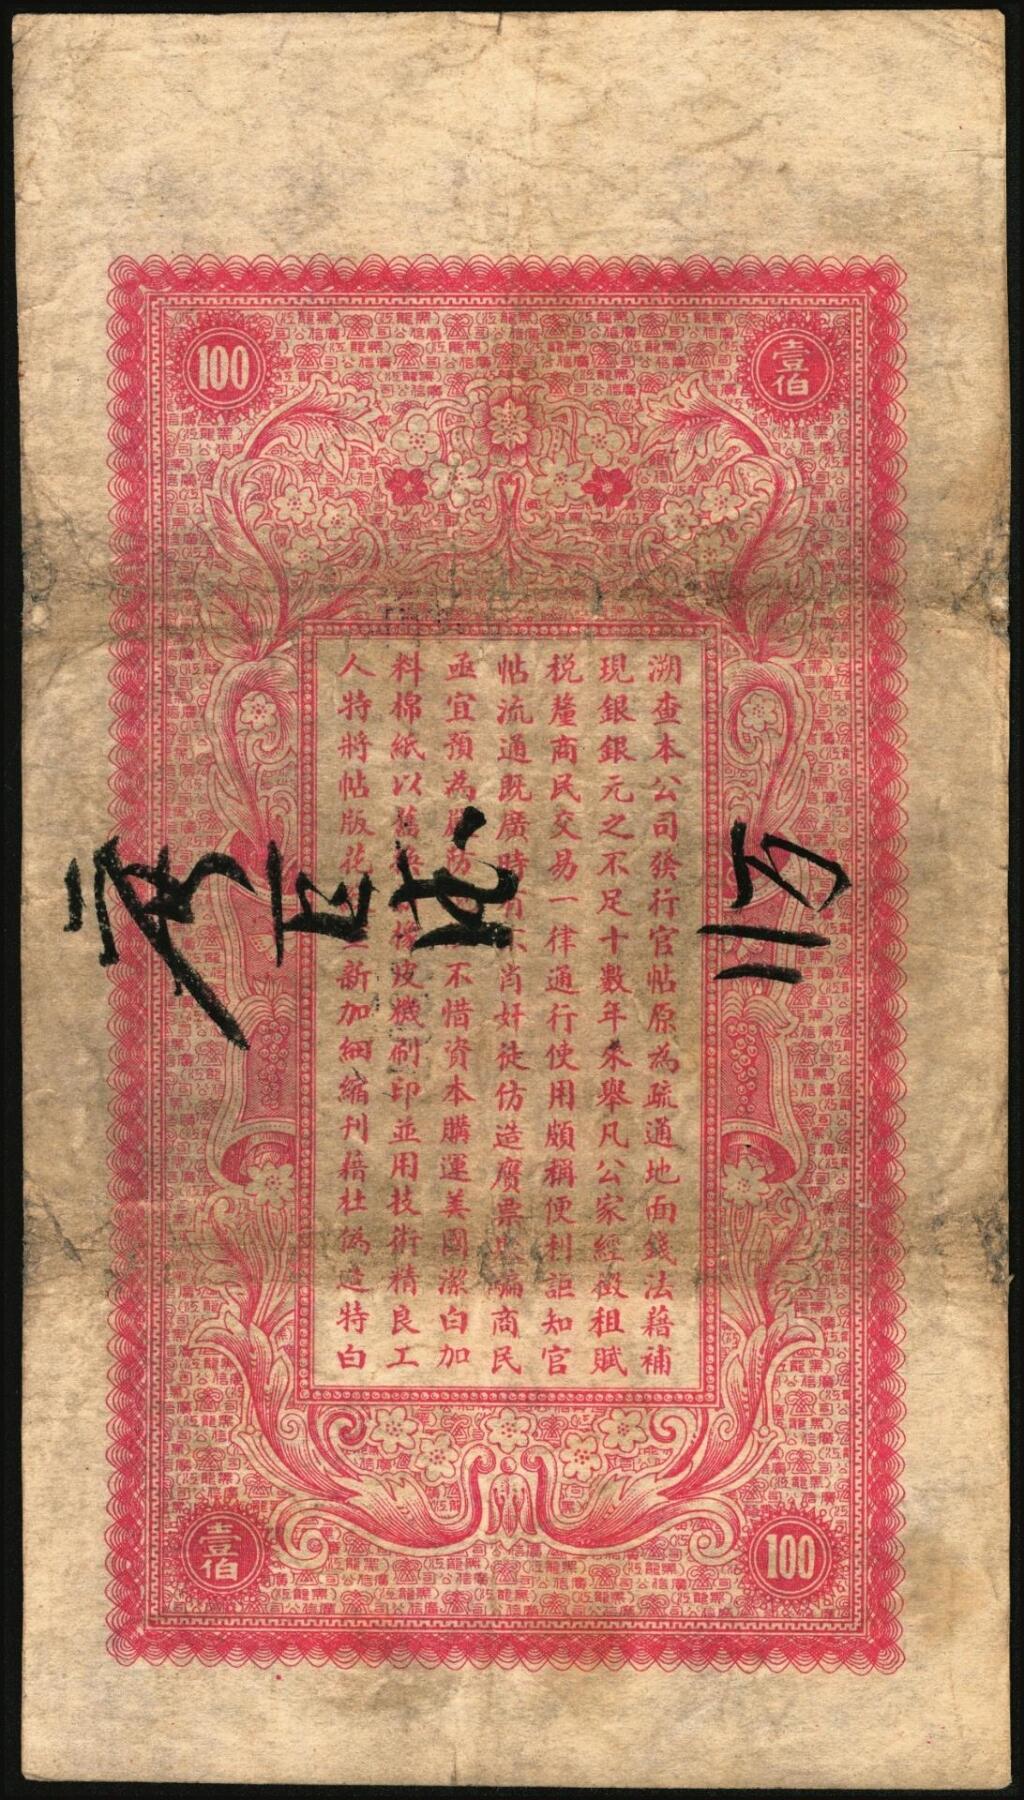 100
壹佰
溯查本公司發行官帖原為疏通地面錢法藉補
現銀銀元之不足十數年來舉凡公家經徵租賦
税釐商民交易一律通行使用頗稱便利詎知官
帖流通既廣時有不肖奸徒仿造贋票騙商民
亟宜預為防不惜資本購運美國潔白加
料棉紙以舊皮機刷印並用技術精良工
人特將帖版花新加細縮刊藉杜偽造特白
壹佰
100
黑龍江廣信公司